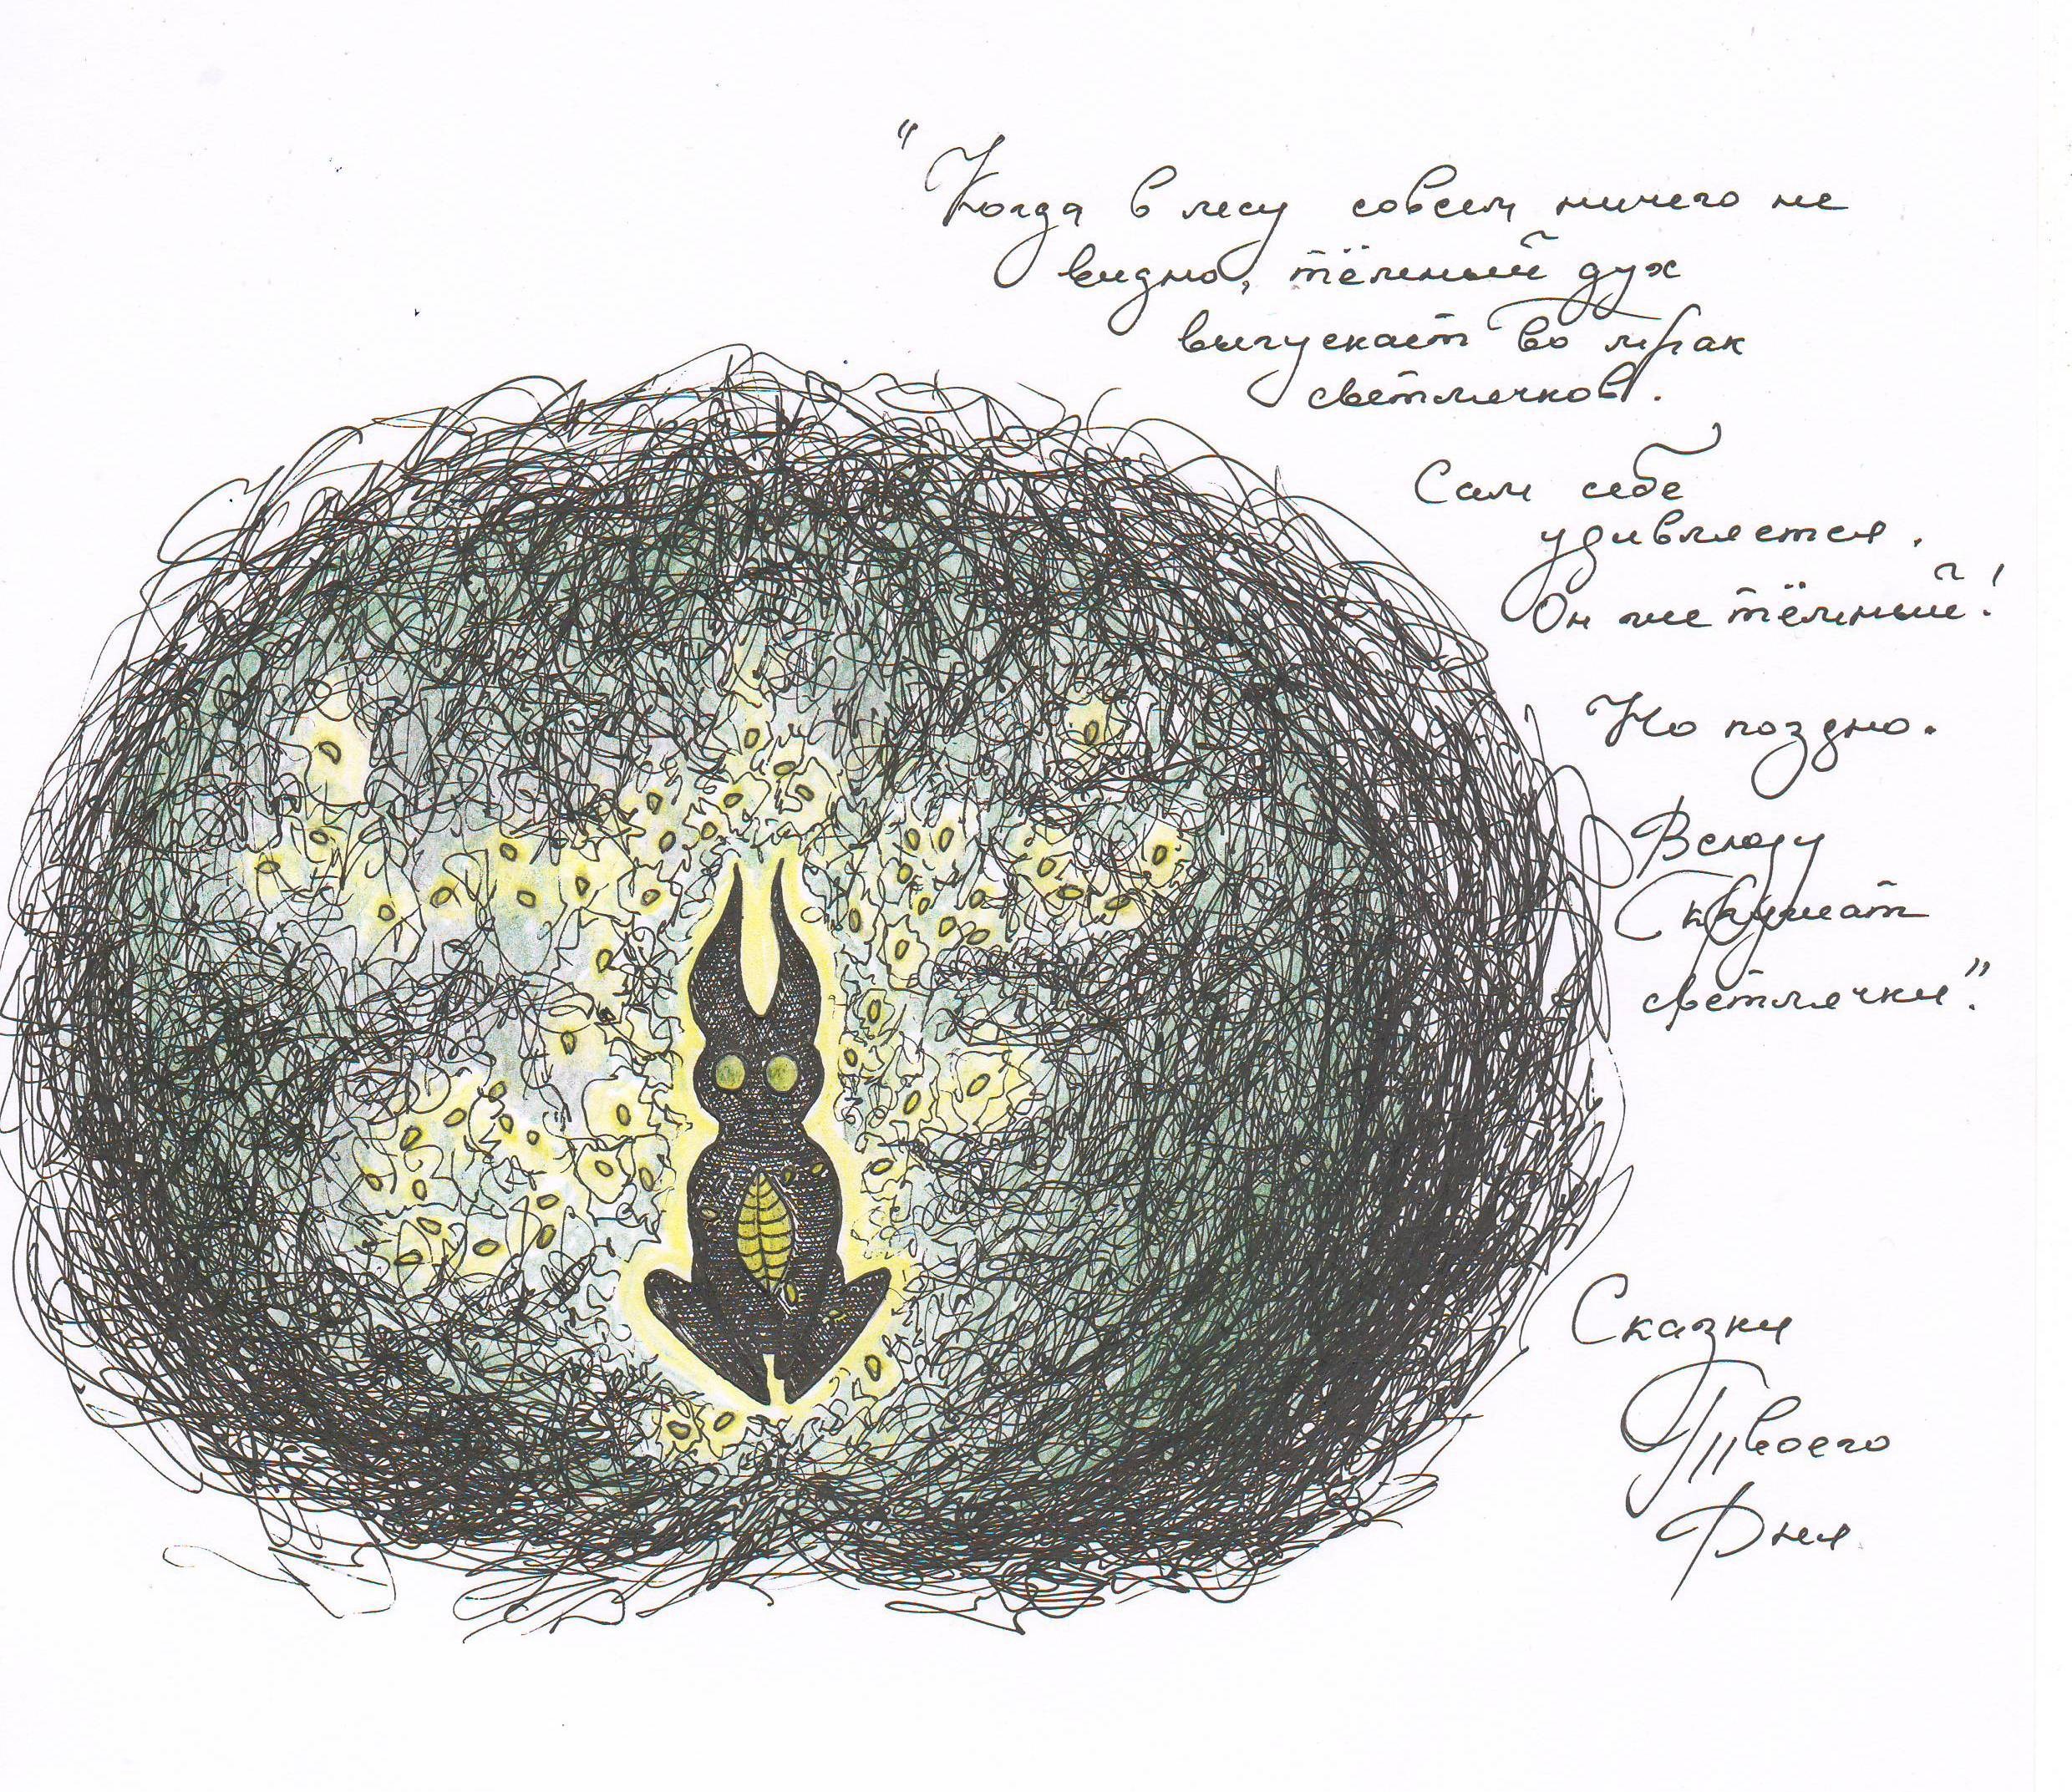 "Когда в лесу совсем ничего не
видно, тёмный дух
выпускает во мрак
светлячков.
Сам себе
удивляется.
Он же тёмный!
Но поздно.
Всюду
кружат
светлячки".
Сказки
Твоего
Дня